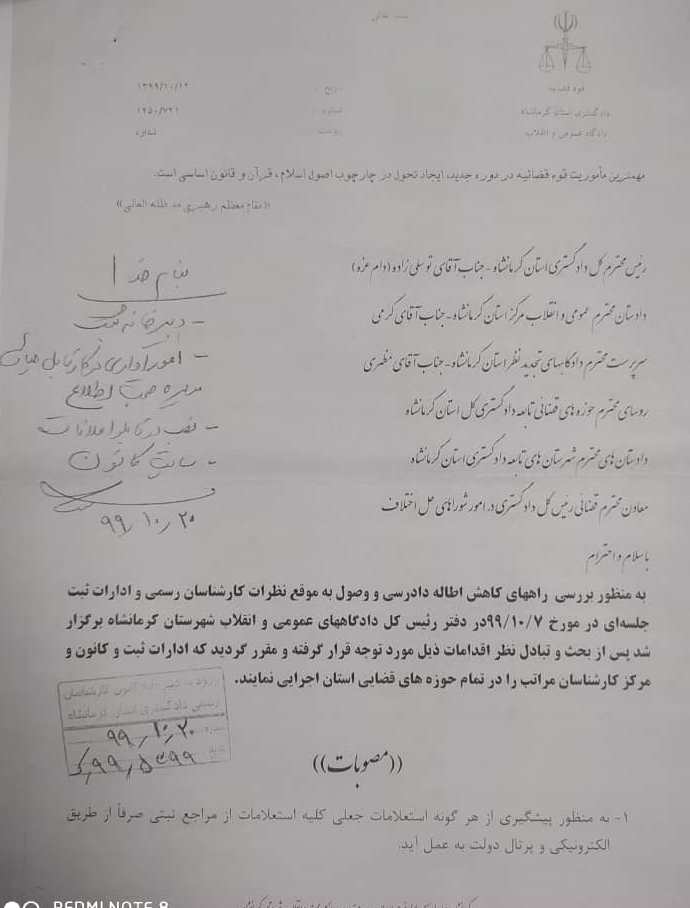 قوه قضائیه
دادگستری استان کرمانشاه
دادگاه عمومی و انقلاب
تاریخ :
۱۳۹۹/۱۰/۱۲
شماره :
۱۲۵۰/۷۲۱
پیوست :
ندارد
مهمترین مأموریت قوه قضائیه در دوره جدید، ایجاد تحول در چارچوب اصول اسلام، قرآن و قانون اساسی است.
«مقام معظم رهبری مد ظله العالی»
رئیس محترم کل دادگستری استان کرمانشاه - جناب آقای توسلی زاده (دام عزه)
دادستان محترم عمومی و انقلاب مرکز استان کرمانشاه - جناب آقای کرمی
سرپرست محترم دادگاههای تجدید نظر استان کرمانشاه - جناب آقای مظهری
روسای محترم حوزه های قضائی تابعه دادگستری کل استان کرمانشاه
دادستان های محترم شهرستان های تابعه دادگستری استان کرمانشاه
معاون محترم قضائی رئیس کل دادگستری در امور شوراهای حل اختلاف
بنام خدا
- دبیرخانه ثبت
مدیره جهت اطلاع
- سایت کانون
۹۹/۱۰/۲۰
باسلام و احترام
به منظور بررسی راههای کاهش اطاله دادرسی و وصول به موقع نظرات کارشناسان رسمی و ادارات ثبت
جلسه‌ای در مورخ ۹۹/۱۰/۷در دفتر رئیس کل دادگاههای عمومی و انقلاب شهرستان کرمانشاه برگزار
شد پس از بحث و تبادل نظر اقدامات ذیل مورد توجه قرار گرفته و مقرر گردید که ادارات ثبت و کانون و
مرکز کارشناسان مراتب را در تمام حوزه های قضایی استان اجرایی نمایند.
کانون کارشناسان
رسمی دادگستری استان کرمانشاه
۹۹/۱۰/۲۰
((مصوبات))
۱- به منظور پیشگیری از هر گونه استعلامات جعلی کلیه استعلامات از مراجع ثبتی صرفاً از طریق
الکترونیکی و پرتال دولت به عمل آید.
REDMI NOTE 8